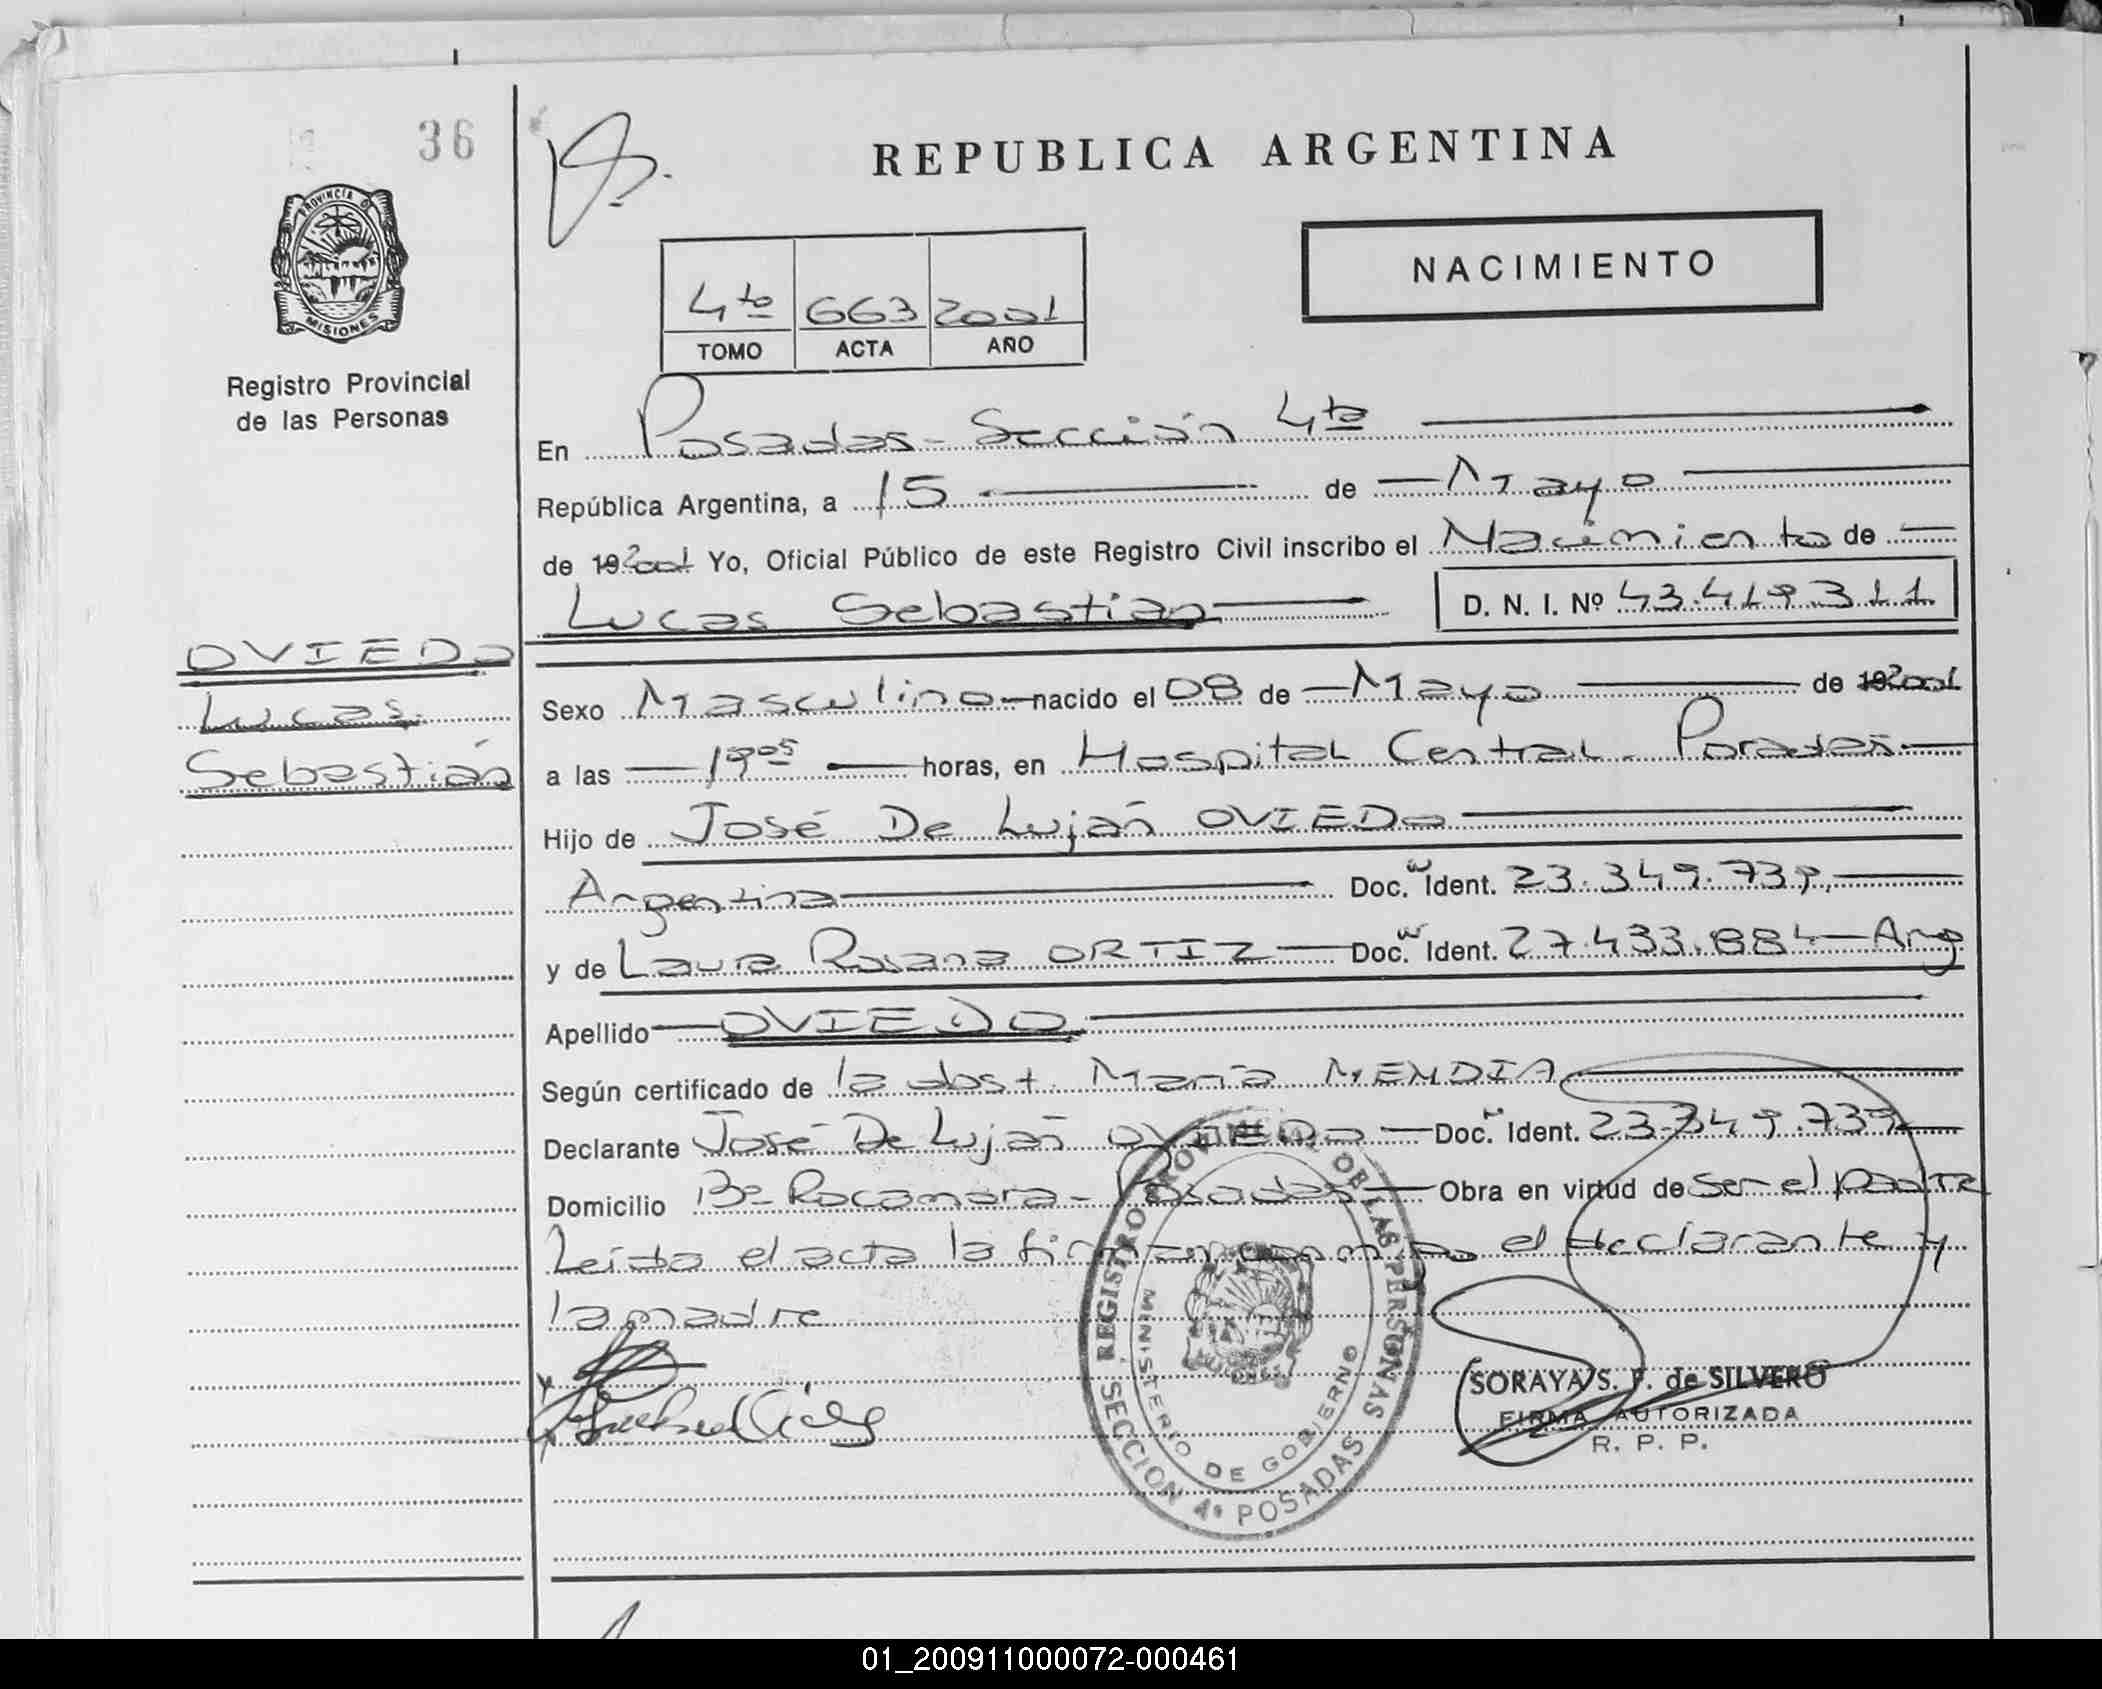 36
REPUBLICA ARGENTINA
PROVINCIA DE
MISIONES
Registro Provincial
de las Personas
NACIMIENTO
4to 663 2001
TOMO ACTA AÑO
En Posadas - Sección 4ta
República Argentina, a 15 de Mayo
de 192001 Yo, Oficial Público de este Registro Civil inscribo el Nacimiento de
Lucas Sebastian D. N. I. Nº 43.419.311
OVIEDO
Lucas
Sebastián
Sexo Masculino nacido el 08 de Mayo de 192001
a las 19 05 horas, en Hospital Central - Posadas
Hijo de José De Luján OVIEDO
Argentina Doc. Ident. 23.349.739
y de Laura Rosana ORTIZ Doc. Ident. 27.433.884 - Arg
Apellido OVIEDO
Según certificado de la obst. María MENDIA
Declarante José De Luján OVIEDO Doc. Ident. 23.349.739
Domicilio Bº Rocamora - Posadas Obra en virtud de ser el padre
Leída el acta la firman conmigo el declarante y
la madre
REGISTRO PROVINCIAL DE LAS PERSONAS
MINISTERIO DE GOBIERNO
SECCION 4ª POSADAS
SORAYA S. F. de SILVERO
FIRMA AUTORIZADA
R. P. P.
01_200911000072-000461